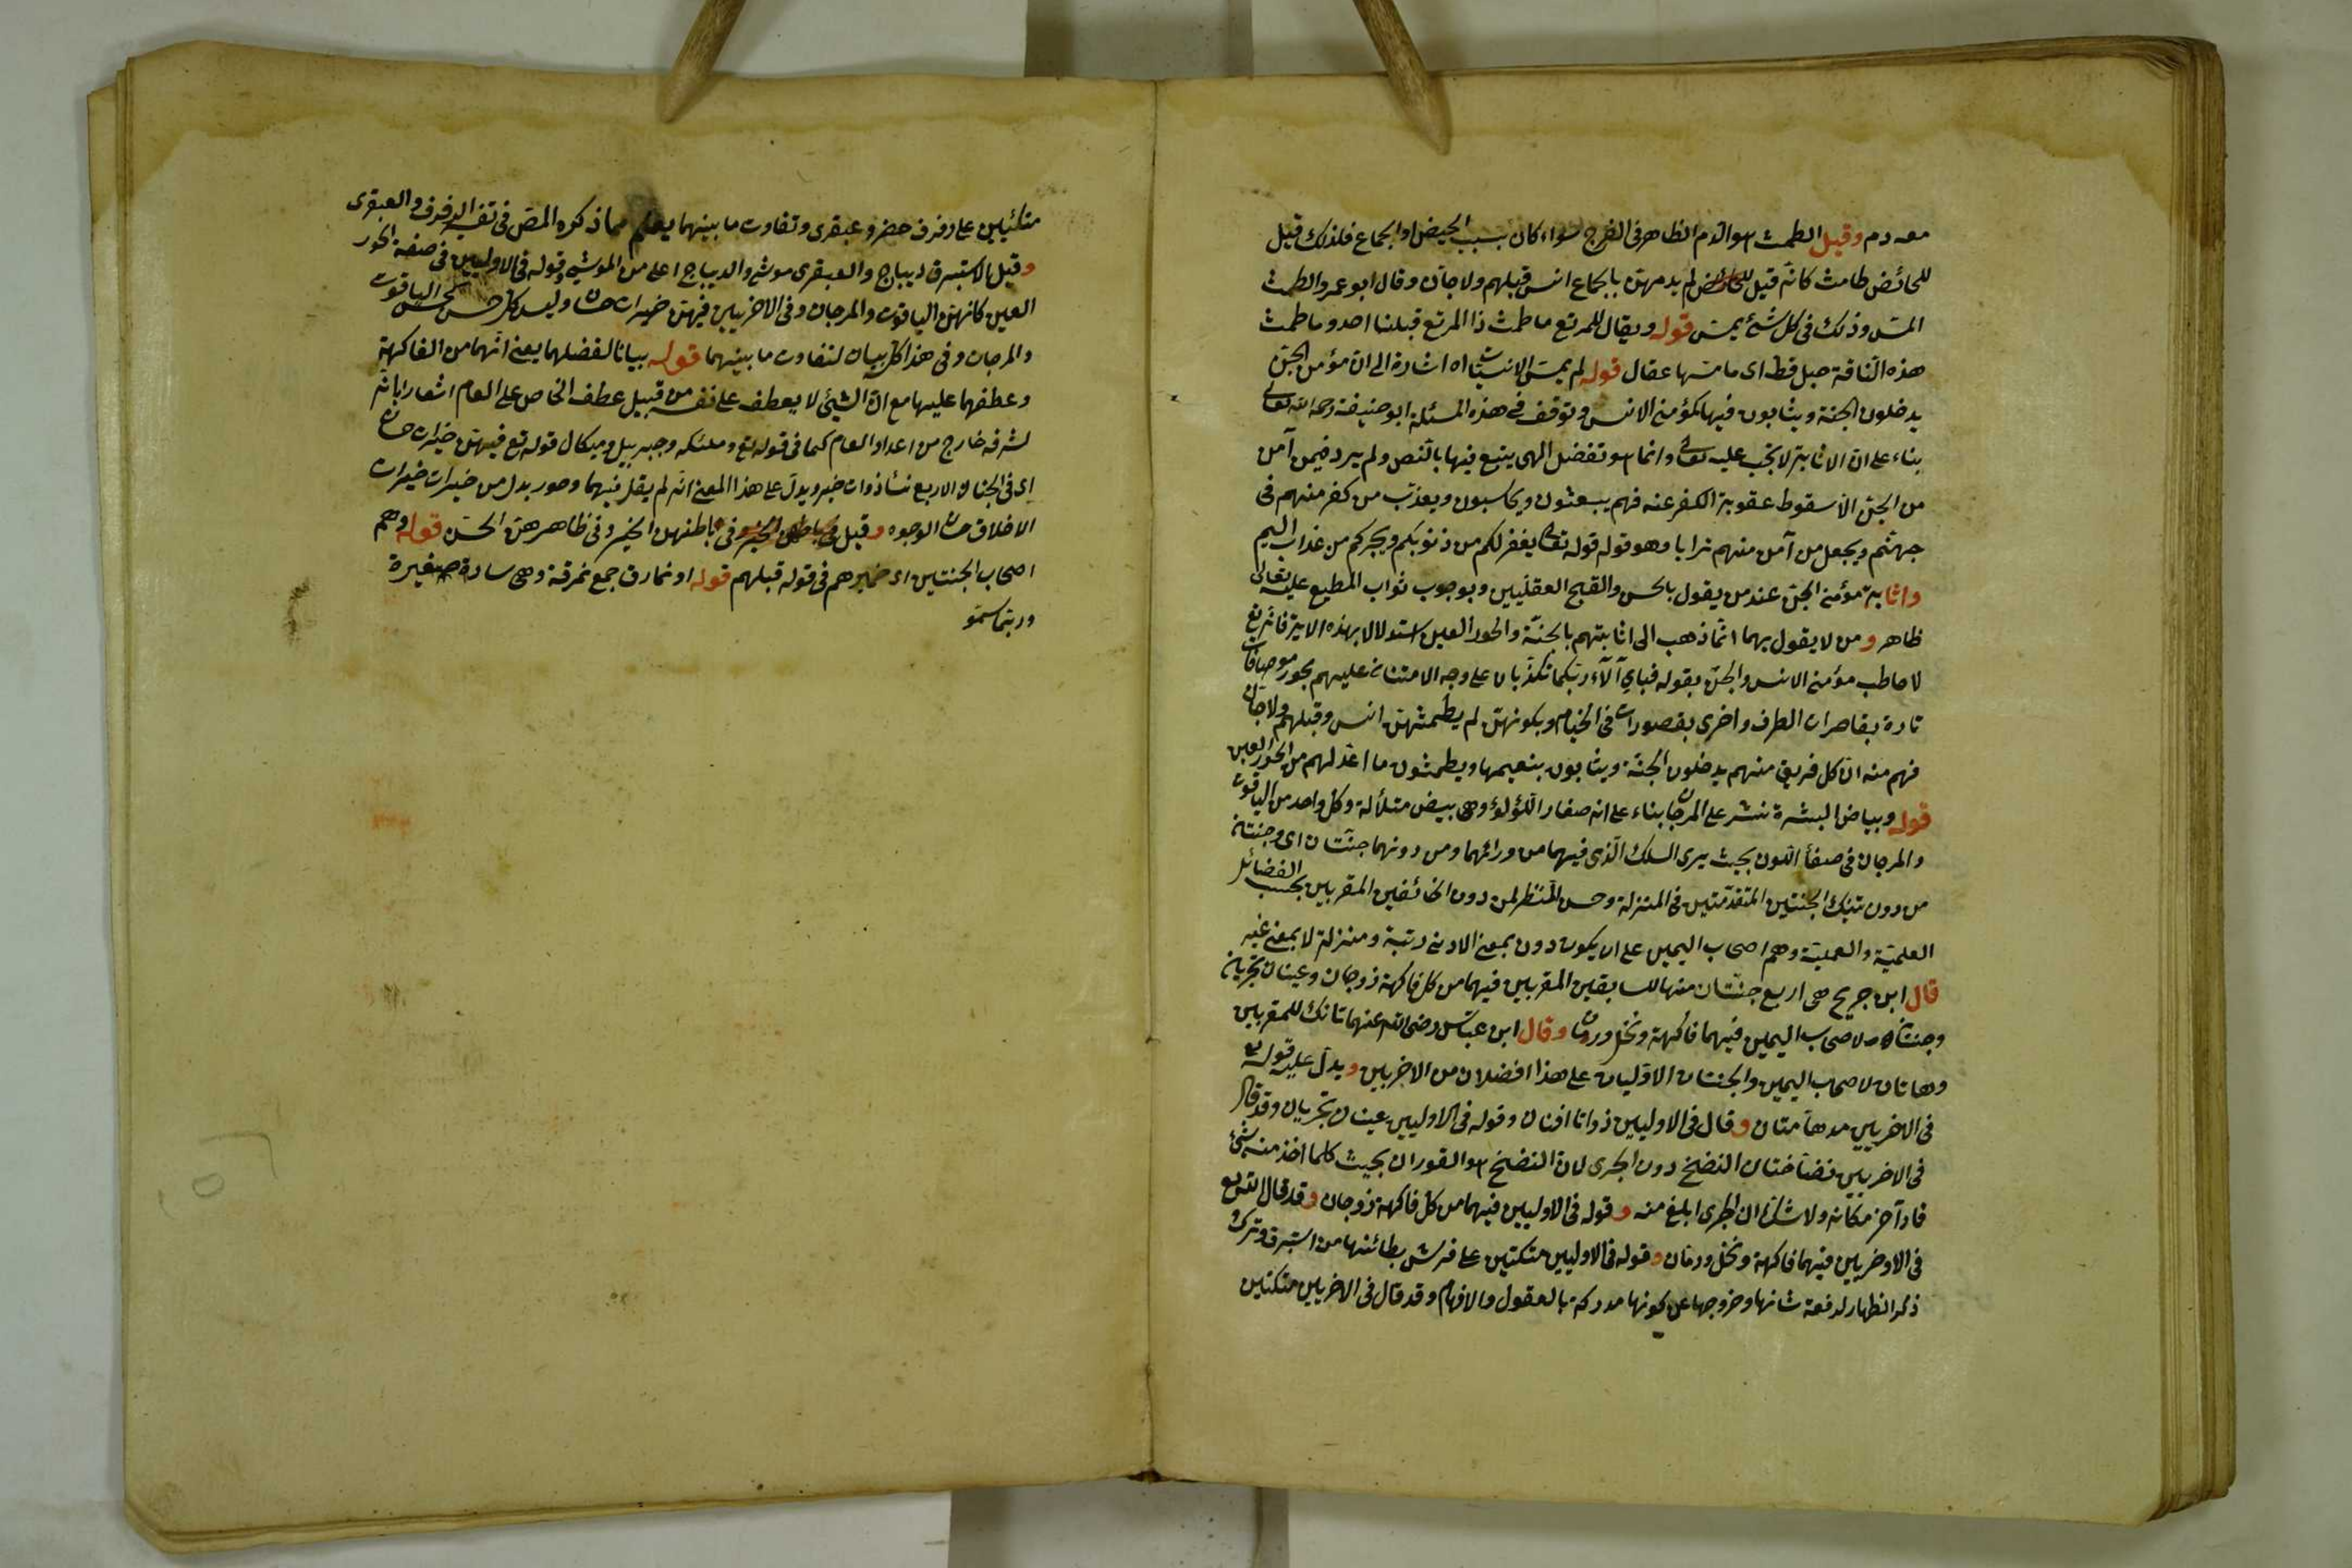 معه دم وقيل الطمث هو الدم الظاهر فى الفرج سواء كان بسبب الحيض او الجماع فلذلك قيل
للحائض طامث كانه قيل لم يدمهن بالجماع انس قبلهم ولا جان وقال ابو عمرو الطمث
المس وذلك فى كل شئ يمس قوله ويقال للمرتع ما طمث ذا المرتع قبلنا احد وما طمث
هذه الناقة حبل قط اى ما مسها عقال قوله لم يمس الانسيات اه اشارة الى ان مؤمن الجن
يدخلون الجنة ويثابون فيها كمؤمن الانس وتوقف فى هذه المسئلة ابو حنيفة رحمه الله تعالى
بناء على ان الاثابة لا تجب عليه تعالى وانما هو تفضل الهى يتبع فيها بالنص ولم يرد فيمن آمن
من الجن الا سقوط عقوبة الكفر عنه فهم يبعثون ويحاسبون ويعذب من كفر منهم فى
جهنم ويجعل من آمن منهم ترابا وهو قوله قوله تعالى يغفر لكم من ذنوبكم ويجركم من عذاب اليم
واثابة مؤمن الجن عند من يقول بالحسن والقبح العقليين وبوجوب ثواب المطيع عليه تعالى
ظاهر ومن لا يقول بهما انما ذهب الى اثابتهم بالجنة والحور العين استدلالا بهذه الاية فانه تع
لا خاطب مؤمن الانس والجن بقوله فباى آلآء ربكما تكذبان على وجه الامتنان عليهم بحور موصوفات
تارة بقاصرات الطرف واخرى بقصورات فى الخيام وبكونهن لم يطمثهن انس قبلهم ولا جان
فهم منه ان كل فريق منهم يدخلون الجنة ويثابون بنعيمها ويطمثون ما اعد لهم من الحور العين
قوله وبياض البشرة نشر على المرجان بناء على انه صغار اللؤلؤ وهى بيض متلألة وكل واحد من الياقوت
والمرجان فى صفاء اللون بحيث يرى السلك الذى فيهما من ورائهما ومن دونهما جنتان اى وجنتان
من دون تينك الجنتين المتقدمتين فى المنزلة وحسن المنظر لمن دون الخائفين المقربين بحسب الفضائل
العلمية والعملية وهم اصحاب اليمين على ان يكون دون بمعنى الادنى رتبة ومنزلة لا بمعنى غير
قال ابن جريج هى اربع جنتان منها للسابقين المقربين فيهما من كل فاكهة زوجان وعينان تجريان
وجنتان لاصحاب اليمين فيهما فاكهة ونخل ورمان وقال ابن عباس رضى الله عنهما تانك للمقربين
وهاتان لاصحاب اليمين والجنتان الاوليان على هذا افضلان من الاخريين ويدل عليه قوله تع
فى الاخريين مدهآمتان وقال فى الاوليين ذواتا افنان وقوله فى الاوليين عينان تجريان وقد قال
فى الاخريين نضاختان النضخ دون الجرى لان النضخ هو الفوران بحيث كلما اخذ منه شئ
فار آخر مكانه ولا شك ان الجرى ابلغ منه وقوله فى الاوليين فيهما من كل فاكهة زوجان وقد قال الله تع
فى الاوخريين فيهما فاكهة ونخل ورمان وقوله فى الاوليين متكئين على فرش بطائنها من استبرق وترك
ذكر الظهار لرفعة شانها وخروجها عن كونها مدركة بالعقول والافهام وقد قال فى الاخريين متكئين
متكئين على رفرف خضر وعبقرى وتفاوت ما بينهما يعلم مما ذكره المص فى تفسير الرفرف والعبقرى
وقيل الاستبرق ديباج والعبقرى موشى والديباج اعلى من الموشى وقوله فى الاوليين فى صفة الحور
العين كانهن الياقوت والمرجان وفى الاخريين فيهن خيرات حسان وليس كل حسن كحسن الياقوت
والمرجان وفى هذا كل بيان لتفاوت ما بينهما قوله بيانا لفضلهما يعنى انهما من الفاكهة
وعطفهما عليها مع ان الشئ لا يعطف على نفسه من قبيل عطف الخاص على العام اشعارا بانه
لشرفه خارج من اعداد العام كما فى قوله تع وملئكته وجبريل وميكال قوله تع فيهن خيرات حسان
اى فى الجنان الاربع نساء ذوات خير ويدل على هذا المعنى انه لم يقل فيهما وحور بدل من خيرات خيرات
الاخلاق حسان الوجوه وقيل فى باطنهن الخير وفى ظاهرهن الحسن قوله وهم
اصحاب الجنتين اى ضميرهم فى قوله قبلهم قوله او نمارق جمع نمرقة وهى سادة صغيرة
وربما سمو